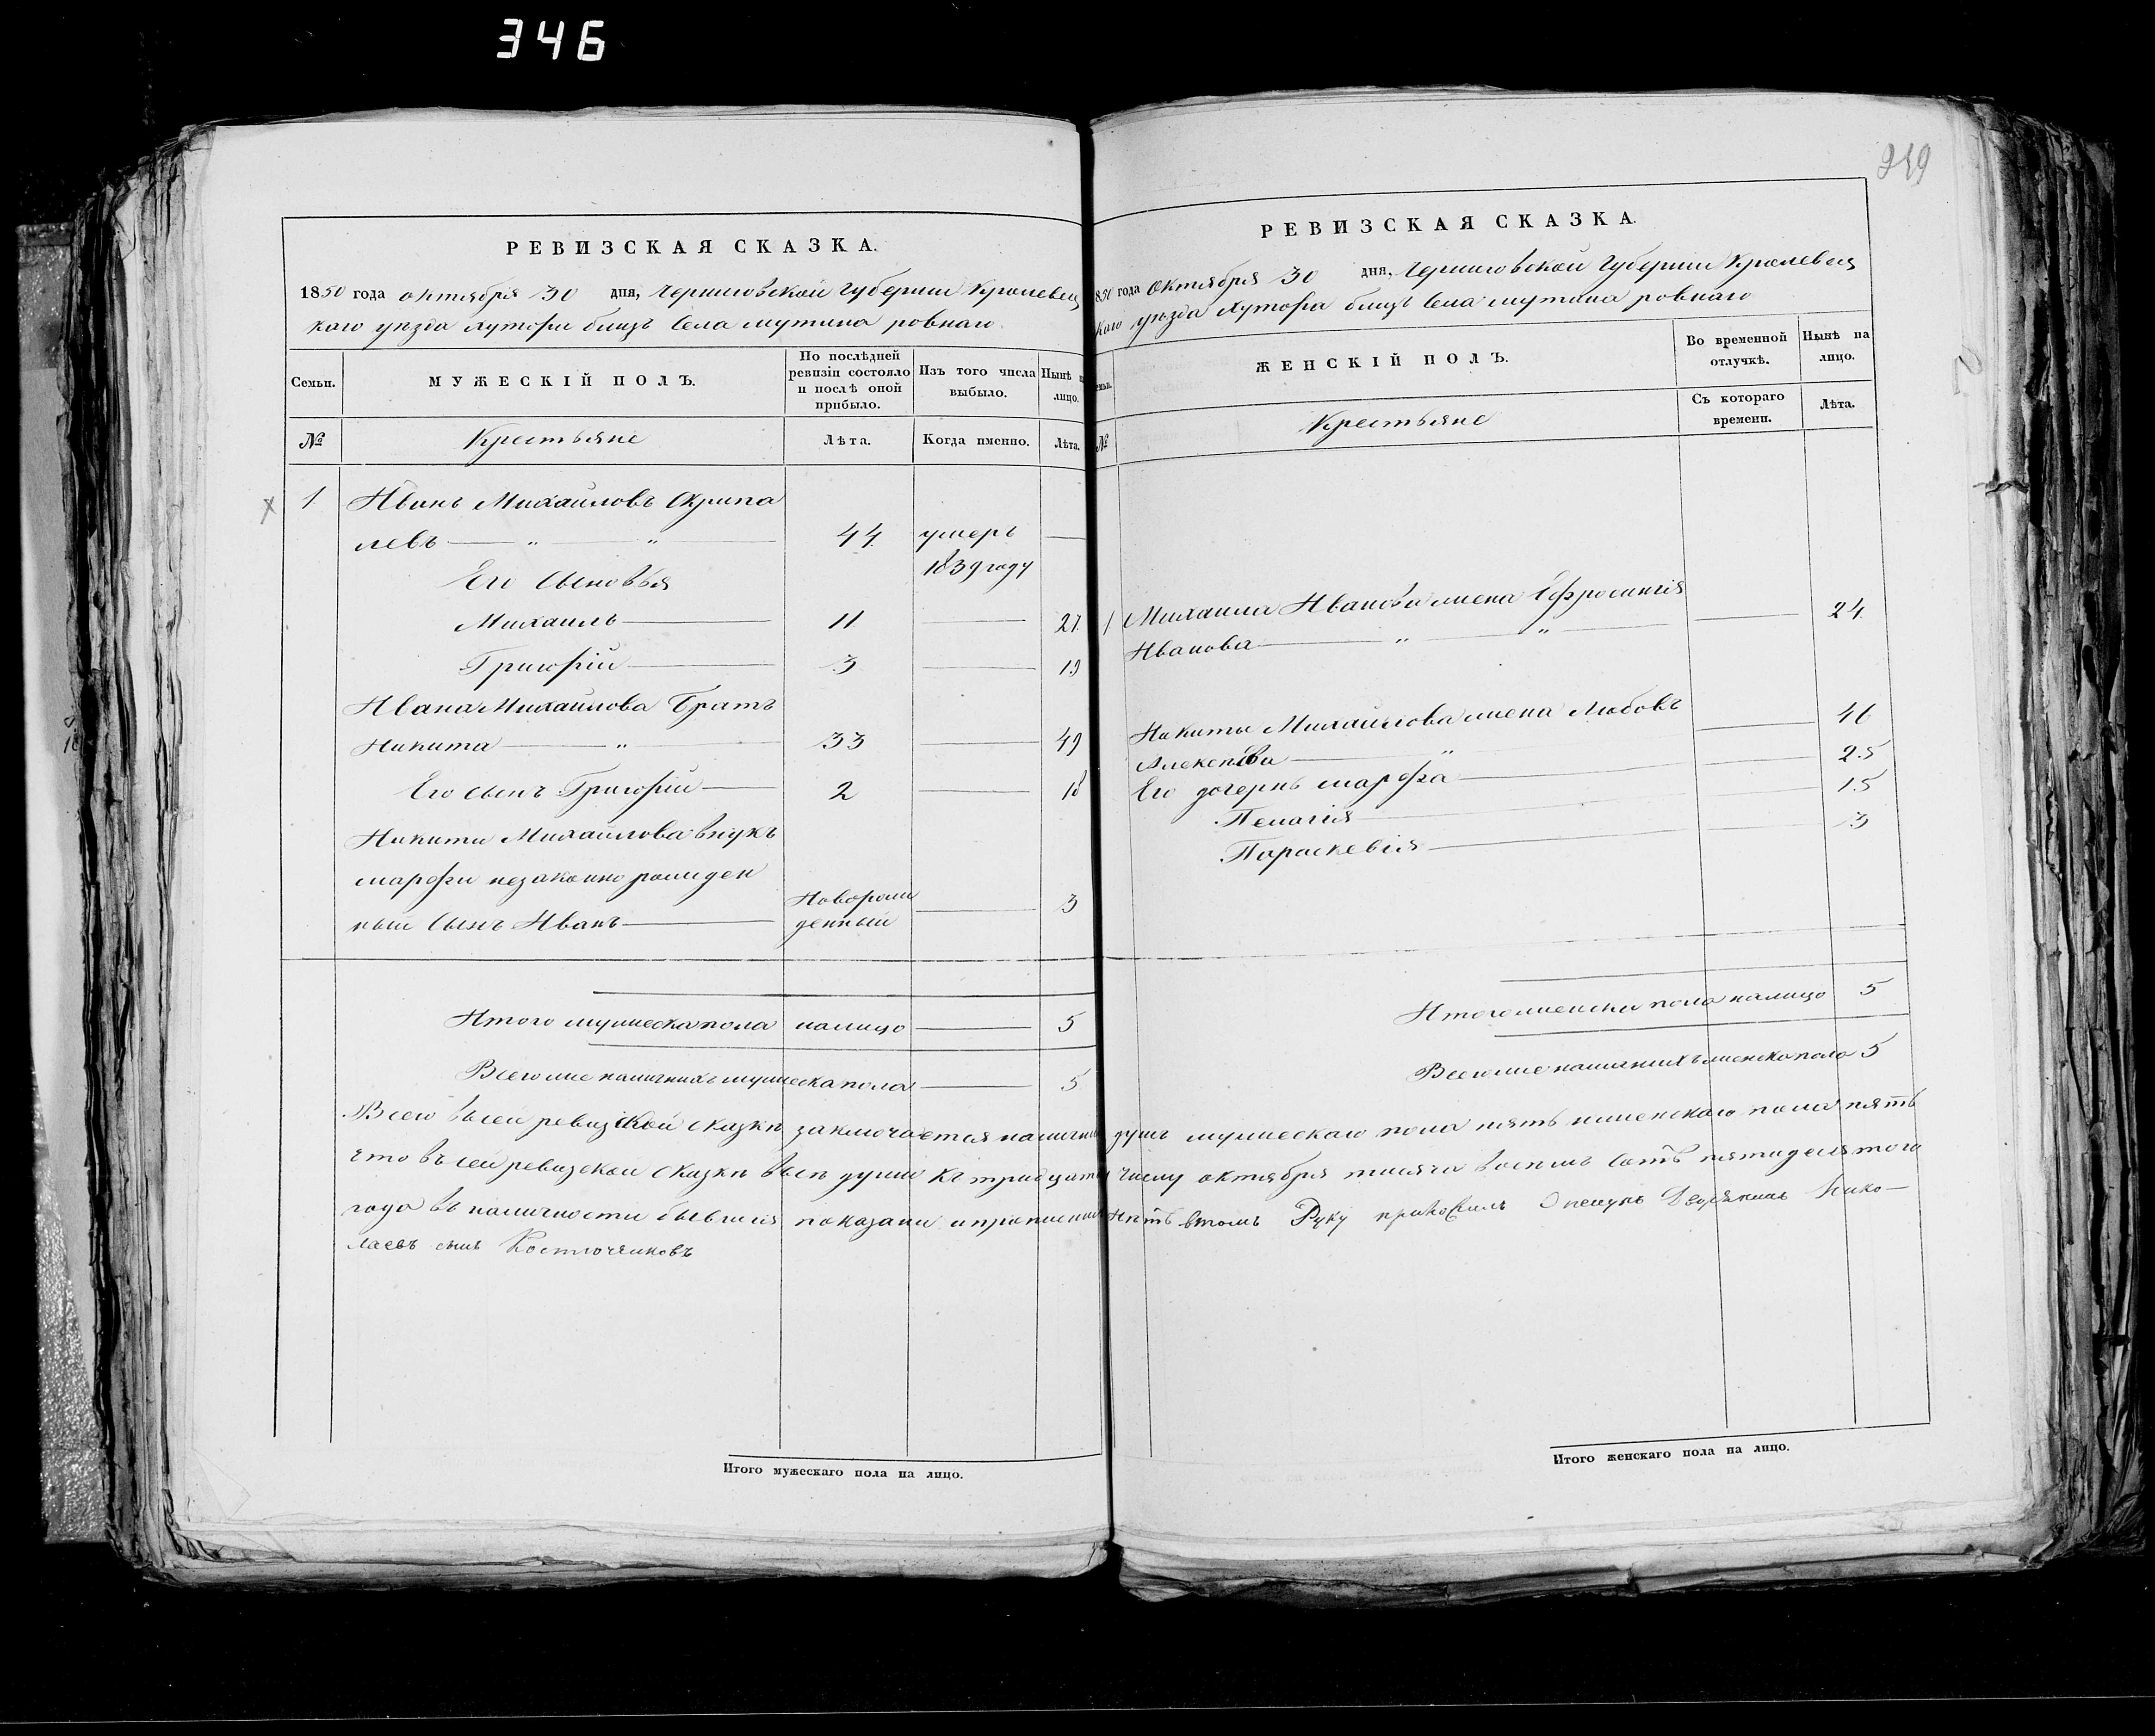 346
РЕВИЗСКАЯ СКАЗКА.
1850 года октября 30 дня, Черниговской Губернии Кролевец
каго уезда Хутора близъ Села мутина ровнаго
Семьи.
МУЖЕСКІЙ ПОЛЪ.
По послѣдней ревизіи состояло и послѣ оной прибыло.
Изъ того числа выбыло.
Нынѣ на лицо.
№ Крестьяне Лѣта. Когда именно. Лѣта.
1 Иванъ Михайловъ Скрипа
левъ — " — " — 44 умеръ —
1839 году
Его Сыновья
Михаилъ — 11 — 27
Григорій — 3 — 19
Ивана Михайлова Братъ
Никита — " — 33 — 49
Его сынъ Григорій — 2 — 18
Никиты Михайлова внукъ
марфы незаконно рожден
ный Сынъ Иванъ — Новорож
денный — 3
Итого мужеска пола налицо — 5
Всего же наличныхъ мужеска пола — 5
Всего въ сей ревизской сказкѣ заключается наличныхъ
что въ сей ревизской сказкѣ всѣ души къ тридцатому
года въ наличности бывшія показаны и прописныхъ
лаевъ сынъ
Итого мужескаго пола на лицо.
249
РЕВИЗСКАЯ СКАЗКА.
1850 года Октября 30 дня, Черниговской Губерніи Кролевец
каго уѣзда Хутора близъ Села мутина ровнаго
Семьи.
ЖЕНСКІЙ ПОЛЪ.
Во временной отлучкѣ.
Нынѣ на лицо.
№ Крестьяне Съ котораго времени. Лѣта.
1 Михаила Иванова жена Ефросинія
Иванова — " — " — 24
Никиты Михайлова жена Любовъ
Алексѣева — " — 46
Его дочерѣ марфа — 25
Пелагія — 15
Параскевія — 3
Итого женска пола налицо 5
Всего же наличныхъ женска пола 5
душъ мужескаго пола пять и женскаго пола пять
числу октября тысяча восемь сотъ пятидесятого
нѣтъ втомъ Руку приложилъ Опекунъ Дворянинъ Нико—
Итого женскаго пола на лицо.